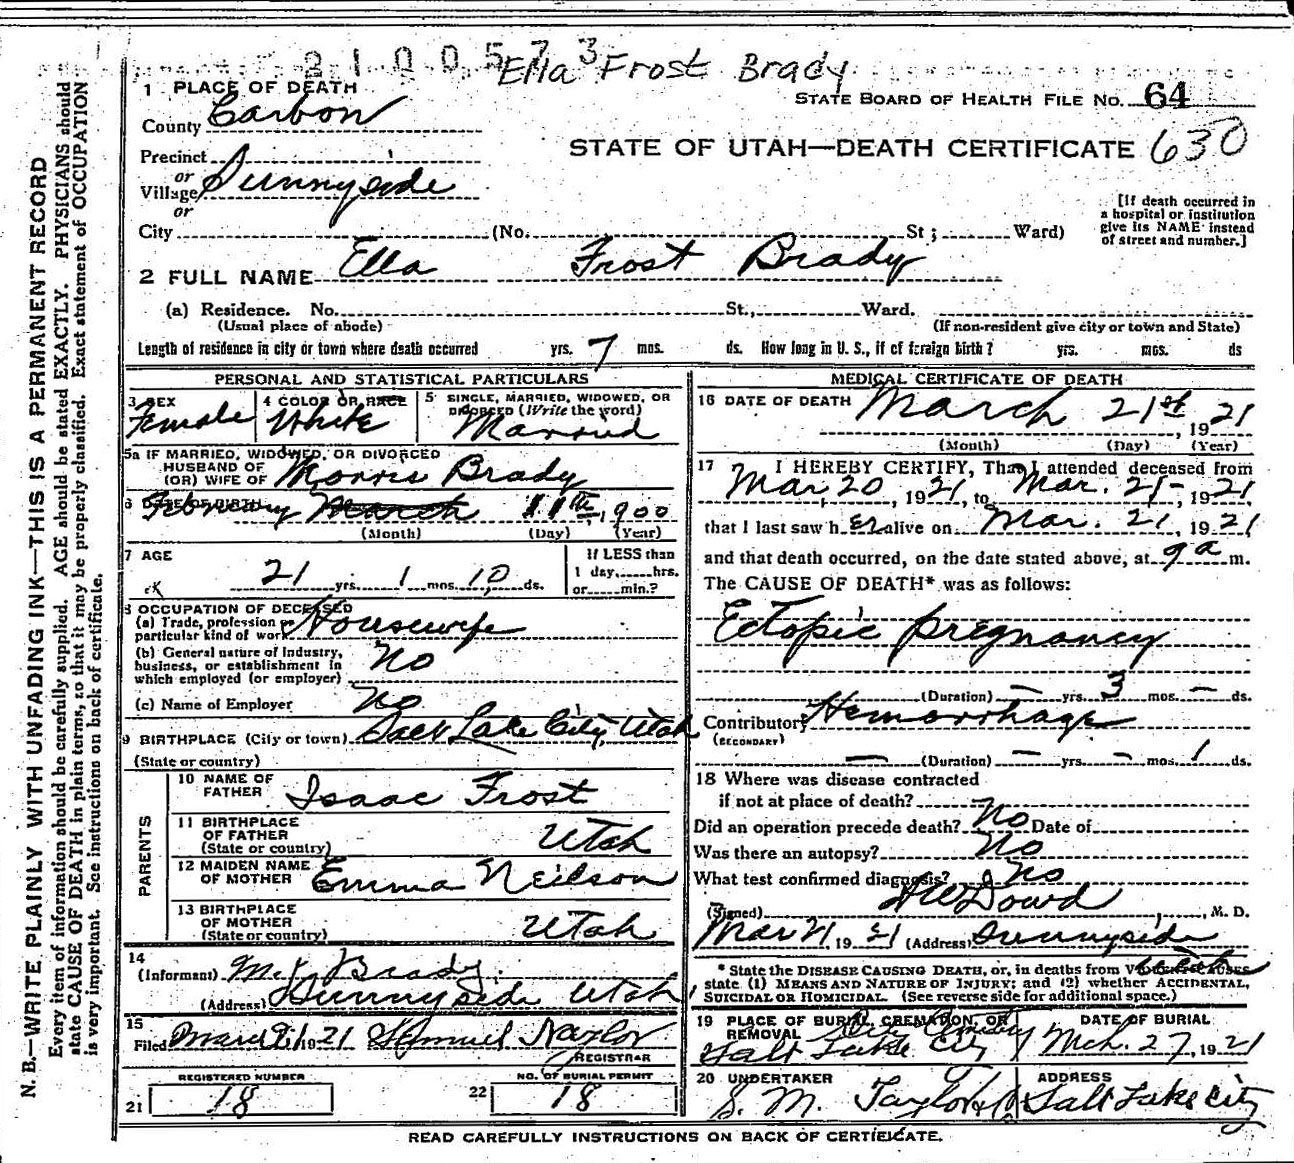 2100573
Ella Frost Brady
1 PLACE OF DEATH
STATE BOARD OF HEALTH FILE NO. 64
County Carbon
STATE OF UTAH—DEATH CERTIFICATE 630
Precinct
or
Village Sunnyside
or
[If death occurred in
a hospital or institution
give its NAME instead
of street and number.]
City (No. St; Ward)
2 FULL NAME Ella Frost Brady
(a) Residence. No. St., Ward.
(Usual place of abode) (If non-resident give city or town and State)
Length of residence in city or town where death occurred yrs. 7 mos. ds. How long in U. S., if of foreign birth? yrs. mos. ds
PERSONAL AND STATISTICAL PARTICULARS
3 SEX Female
4 COLOR OR RACE White
5 SINGLE, MARRIED, WIDOWED, OR
DIVORCED (Write the word)
Married
5a IF MARRIED, WIDOWED, OR DIVORCED
HUSBAND OF
(OR) WIFE OF Morris Brady
6 DATE OF BIRTH February March 11th, 1900
(Month) (Day) (Year)
7 AGE
21 yrs. 1 mos. 10 ds.
If LESS than
1 day, hrs.
or min.?
8 OCCUPATION OF DECEASED
(a) Trade, profession or
particular kind of work Housewife
(b) General nature of Industry,
business, or establishment in
which employed (or employer) No
(c) Name of Employer No
9 BIRTHPLACE (City or town) Salt Lake City, Utah
(State or country)
PARENTS
10 NAME OF
FATHER Isaac Frost
11 BIRTHPLACE
OF FATHER
(State or country) Utah
12 MAIDEN NAME
OF MOTHER Emma Neilson
13 BIRTHPLACE
OF MOTHER
(State or country) Utah
14
(Informant) M. Brady
(Address) Sunnyside Utah
15
Filed March 21 1921 Samuel Naylor
REGISTRAR
REGISTERED NUMBER
21 18
NO. OF BURIAL PERMIT
22 18
MEDICAL CERTIFICATE OF DEATH
16 DATE OF DEATH March 21st, 1921
(Month) (Day) (Year)
17 I HEREBY CERTIFY, That I attended deceased from
Mar 20, 1921, to Mar. 21-, 1921
that I last saw h er alive on Mar. 21, 1921
and that death occurred, on the date stated above, at 9 a m.
The CAUSE OF DEATH* was as follows:
Ectopic pregnancy
(Duration) — yrs. 3 mos. — ds.
Contributory Hemorrhage
(SECONDARY)
— (Duration) — yrs. — mos. 1 ds.
18 Where was disease contracted
if not at place of death?
Did an operation precede death? No Date of
Was there an autopsy? No
What test confirmed diagnosis? No
(Signed) Dowd, M. D.
Mar 21, 1921 (Address) Sunnyside
Utah
* State the DISEASE CAUSING DEATH, or, in deaths from VIOLENT CAUSES
state (1) MEANS AND NATURE OF INJURY; and (2) whether ACCIDENTAL,
SUICIDAL OR HOMICIDAL. (See reverse side for additional space.)
19 PLACE OF BURIAL CREMATION, OR
REMOVAL City Cemetery
Salt Lake City
DATE OF BURIAL
Mch. 27, 1921
20 UNDERTAKER
S. M. Taylor & Co
ADDRESS
Salt Lake City
READ CAREFULLY INSTRUCTIONS ON BACK OF CERTIFICATE.
N. B.—WRITE PLAINLY WITH UNFADING INK—THIS IS A PERMANENT RECORD
Every item of information should be carefully supplied. AGE should be stated EXACTLY. PHYSICIANS should
state CAUSE OF DEATH in plain terms, so that it may be properly classified. Exact statement of OCCUPATION
is very important. See instructions on back of certificate.